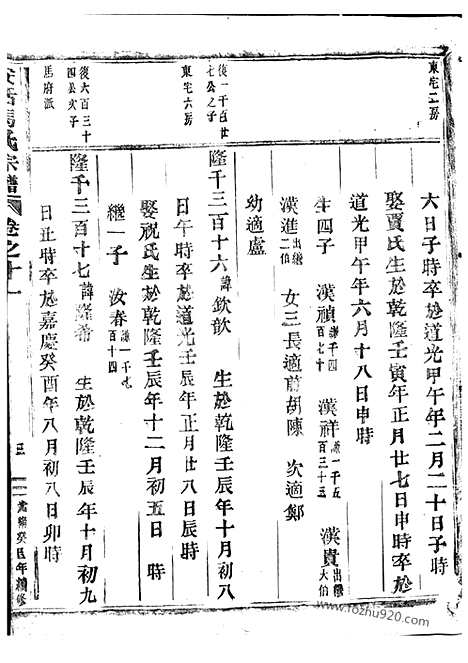 東宅二房
六日子時卒於道光甲午年二月二十日子時
娶賈氏生於乾隆壬寅年正月廿七日申時卒於
道光甲午年六月十八日申時
生四子 漢禎謙千四百七十 漢祥謙一千五百三十五 漢貴出繼大伯
漢進出繼二伯 女三長適前胡陳 次適鄭
幼適盧
後一千百廿七公之子
東宅六房
隆千三百十六諱欽歆 生於乾隆壬辰年十月初八
日午時卒於道光壬辰年正月廿八日辰時
娶祝氏生於乾隆壬辰年十二月初五日 時
繼一子 汝春謙一千七百十四
後六百三十四公次子
馬府派
隆千三百十七諱隆希 生於乾隆壬辰年十月初九
日丑時卒於嘉慶癸酉年八月初八日卯時
馬氏宗譜 卷之十一
三
光緒癸巳年續修
www.fozhu920.com